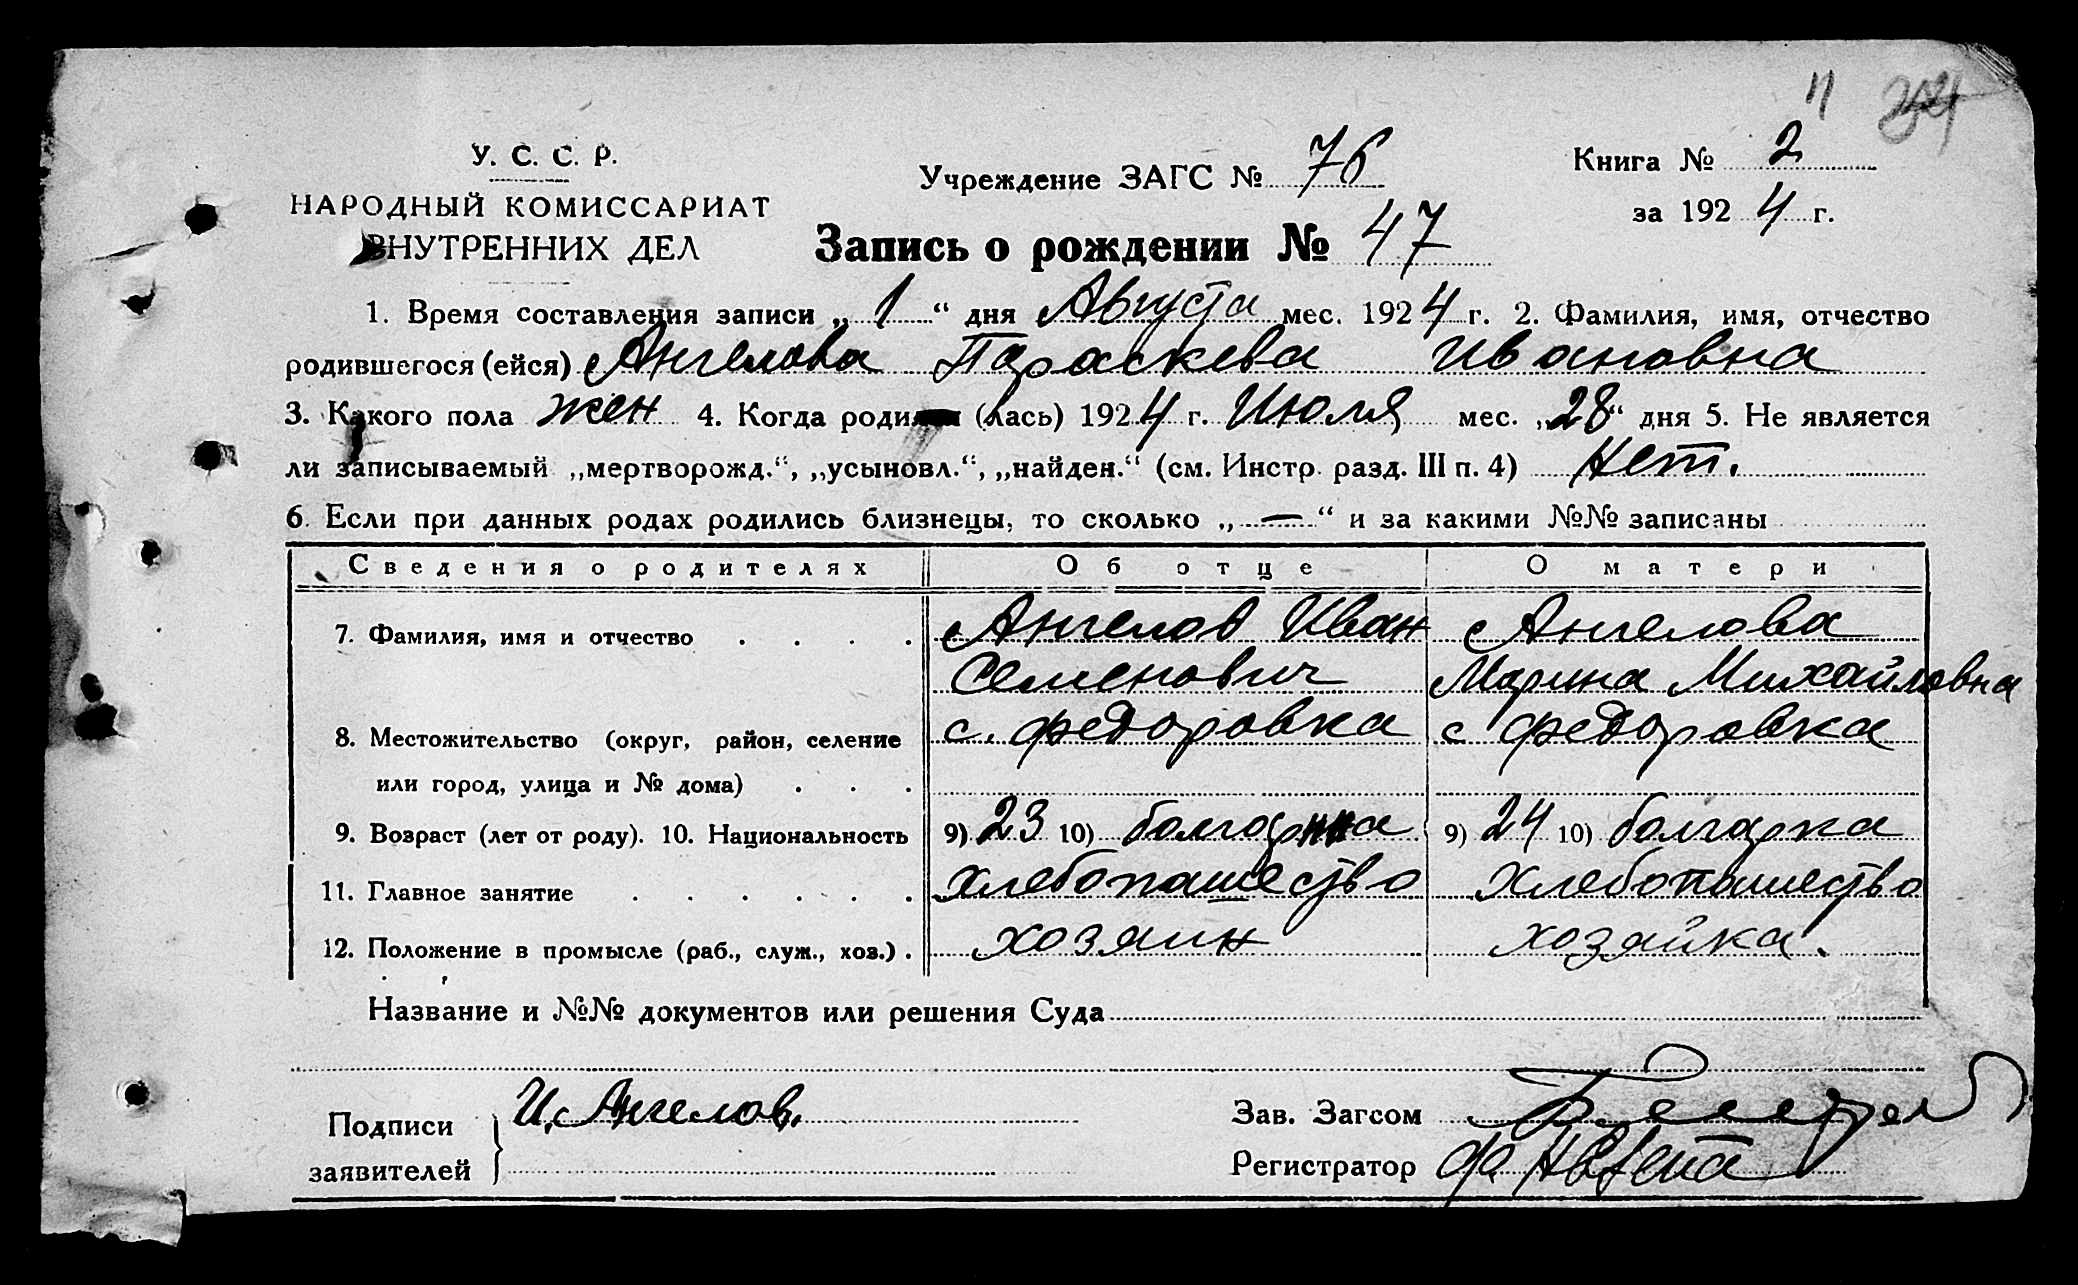 11 24
У. С. С. Р.
НАРОДНЫЙ КОМИССАРИАТ
ВНУТРЕННИХ ДЕЛ
Учреждение ЗАГС № 76
Книга № 2
за 1924 г.
Запись о рождении № 47
1. Время составления записи „1“ дня Августа мес. 1924 г. 2. Фамилия, имя, отчество
родившегося (ейся) Ангелова Параскева Ивановна
3. Какого пола жен 4. Когда родил (лась) 1924 г. Июля мес. „28“ дня 5. Не является
ли записываемый „мертворожд.“, „усыновл.“, „найден.“ (см. Инстр. разд. III п. 4) Нет.
6. Если при данных родах родились близнецы, то сколько „—“ и за какими №№ записаны
Сведения о родителях Об отце О матери
7. Фамилия, имя и отчество . . . . Ангелов Иван Ангелова
Семенович Марина Михайловна
8. Местожительство (округ, район, селение с. Федоровка с Федоровка
или город, улица и № дома) . . .
9. Возраст (лет от роду). 10. Национальность 9) 23 10) 9) 24 10) болгарка
11. Главное занятие . . . . . . хлебопашество хлебопашество
12. Положение в промысле (раб., служ., хоз.) . хозяин хозяйка.
Название и №№ документов или решения Суда
Подписи
заявителей } И. Ангелов.
Зав. Загсом
Регистратор